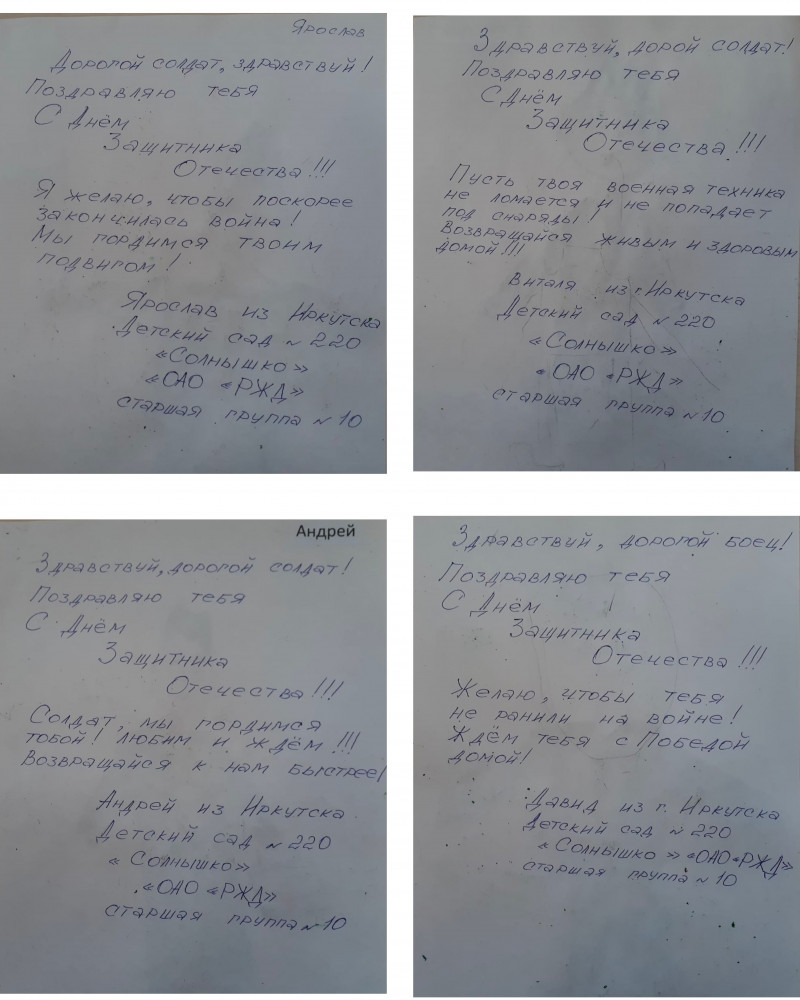 Ярослав
Дорогой солдат, здравствуй!
Поздравляю тебя
С Днём
Защитника
Отечества!!!
Я желаю, чтобы поскорее
закончилась война!
Мы гордимся твоим
подвигом!
Ярослав из Иркутска
Детский сад № 220
«Солнышко»
«ОАО «РЖД»
старшая группа № 10
Здравствуй, дорой солдат!
Поздравляю тебя
С Днём
Защитника
Отечества!!!
Пусть твоя военная техника
не ломается и не попадает
под снаряды!
Возвращайся живым и здоровым
домой!!!
Виталя из г. Иркутска
Детский сад № 220
«Солнышко»
«ОАО «РЖД»
старшая группа № 10
Андрей
Здравствуй, дорогой солдат!
Поздравляю тебя
С Днём
Защитника
Отечества!!!
Солдат, мы гордимся
тобой! Любим и ждём!!!
Возвращайся к нам быстрее!
Андрей из Иркутска
Детский сад № 220
«Солнышко»
«ОАО «РЖД»
старшая группа № 10
Здравствуй, дорогой боец!
Поздравляю тебя
С Днём
Защитника
Отечества!!!
Желаю, чтобы тебя
не ранили на войне!
Ждём тебя с Победой
домой!
Давид из г. Иркутска
Детский сад № 220
«Солнышко» «ОАО «РЖД»
старшая группа № 10